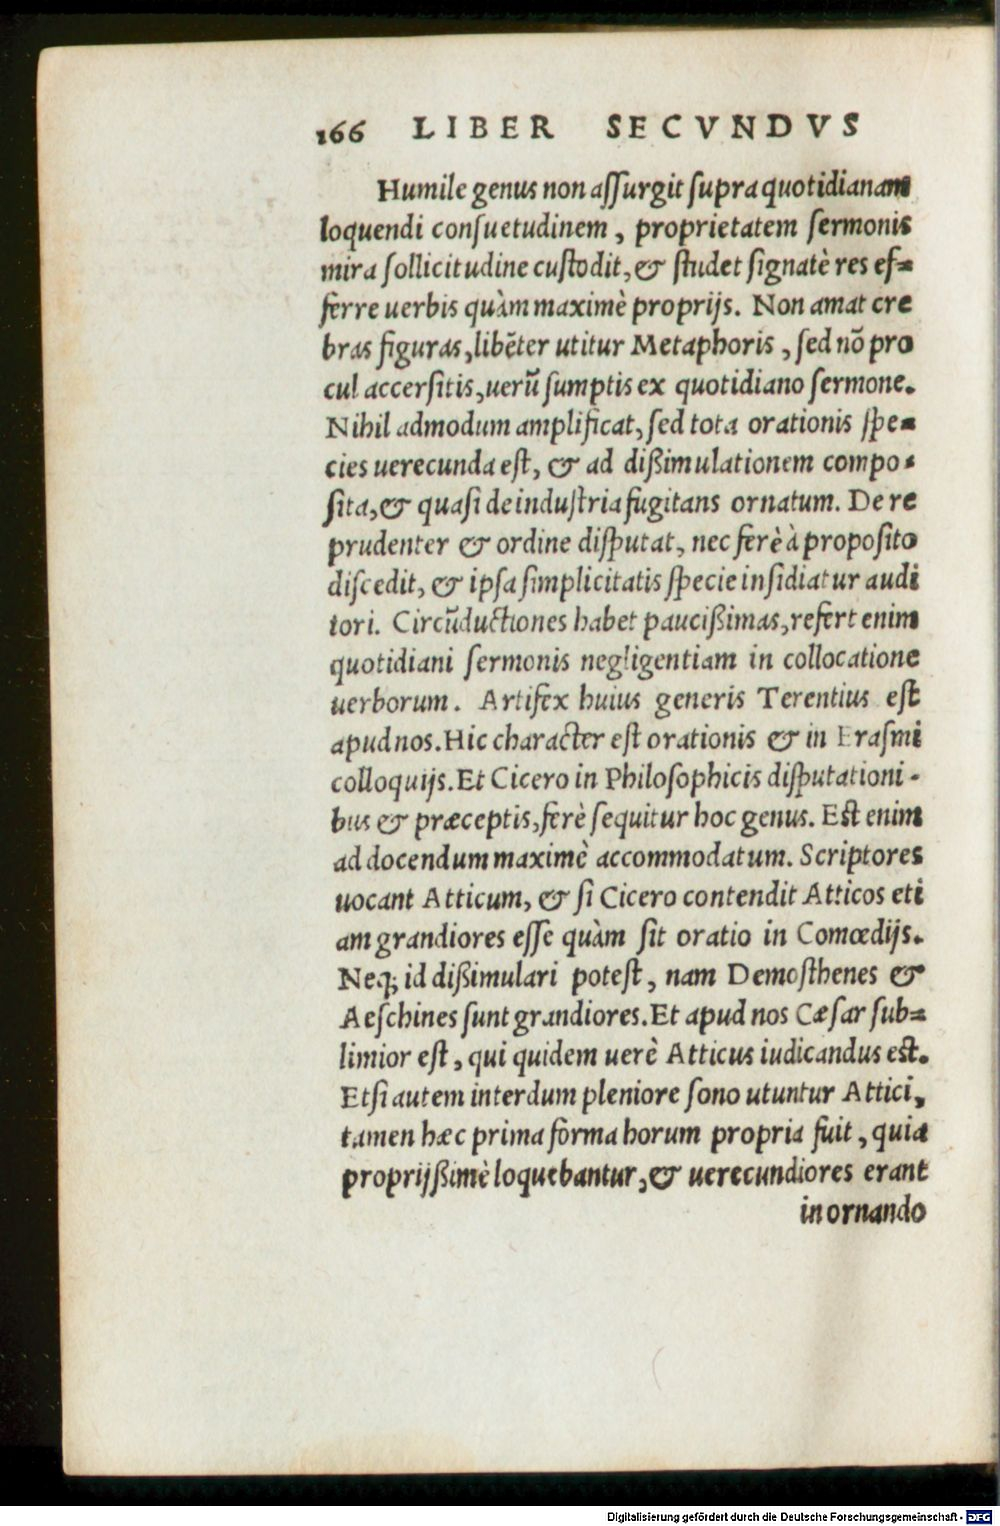 166 LIBER SECVNDVS
Humile genus non assurgit supra quotidianam
loquendi consuetudinem, proprietatem sermonis
mira sollicitudine custodit, & studet signatè res ef=
ferre uerbis quàm maximè proprijs. Non amat cre
bras figuras, libẽter utitur Metaphoris, sed nõ pro
cul accersitis, uerũ sumptis ex quotidiano sermone.
Nihil admodum amplificat, sed tota orationis spe=
cies uerecunda est, & ad dißimulationem compo=
sita, & quasi de industria fugitans ornatum. De re
prudenter & ordine disputat, nec ferè à proposito
discedit, & ipsa simplicitatis specie insidiatur audi
tori. Circũductiones habet paucißimas, refert enim
quotidiani sermonis negligentiam in collocatione
uerborum. Artifex huius generis Terentius est
apud nos. Hic character est orationis & in Erasmi
colloquijs. Et Cicero in Philosophicis disputationi-
bus & præceptis, ferè sequitur hoc genus. Est enim
ad docendum maximè accommodatum. Scriptores
uocant Atticum, & si Cicero contendit Atticos eti
am grandiores esse quàm sit oratio in Comœdijs.
Neq; id dißimulari potest, nam Demosthenes &
Aeschines sunt grandiores. Et apud nos Cæsar sub=
limior est, qui quidem uerè Atticus iudicandus est.
Etsi autem interdum pleniore sono utuntur Attici,
tamen hæc prima forma horum propria fuit, quia
proprijßimè loquebantur, & uerecundiores erant
in ornando
Digitalisierung gefördert durch die Deutsche Forschungsgemeinschaft - DFG